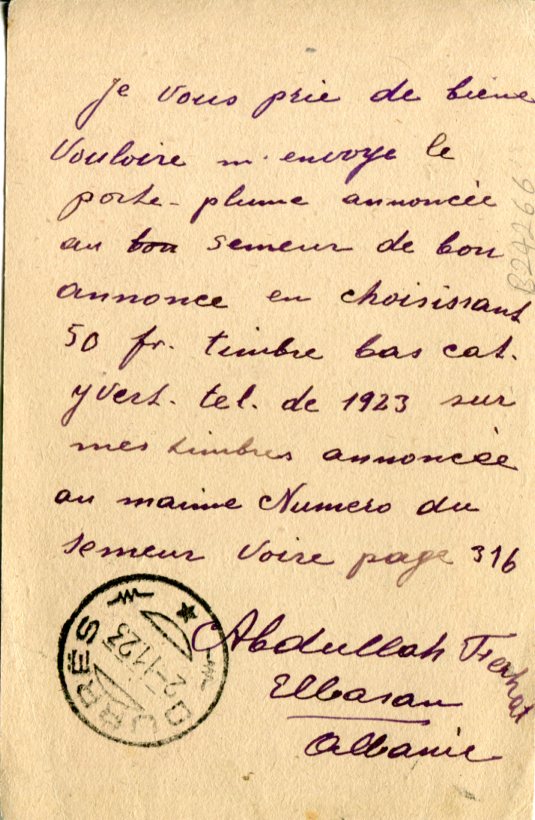 Je vous prie de biene
Vouloire m'envoye le
porte-plume annoncée
au bon semeur de bon
annonce en choisissant
50 fr. timbre bas cat.
yvert. tel. de 1923 sur
mes timbres annoncée
au maime Numero du
semeur Voire page 316
Abdullah Ferhat
Elbasan
Albanie
DURRËS
2-11 23
B24266